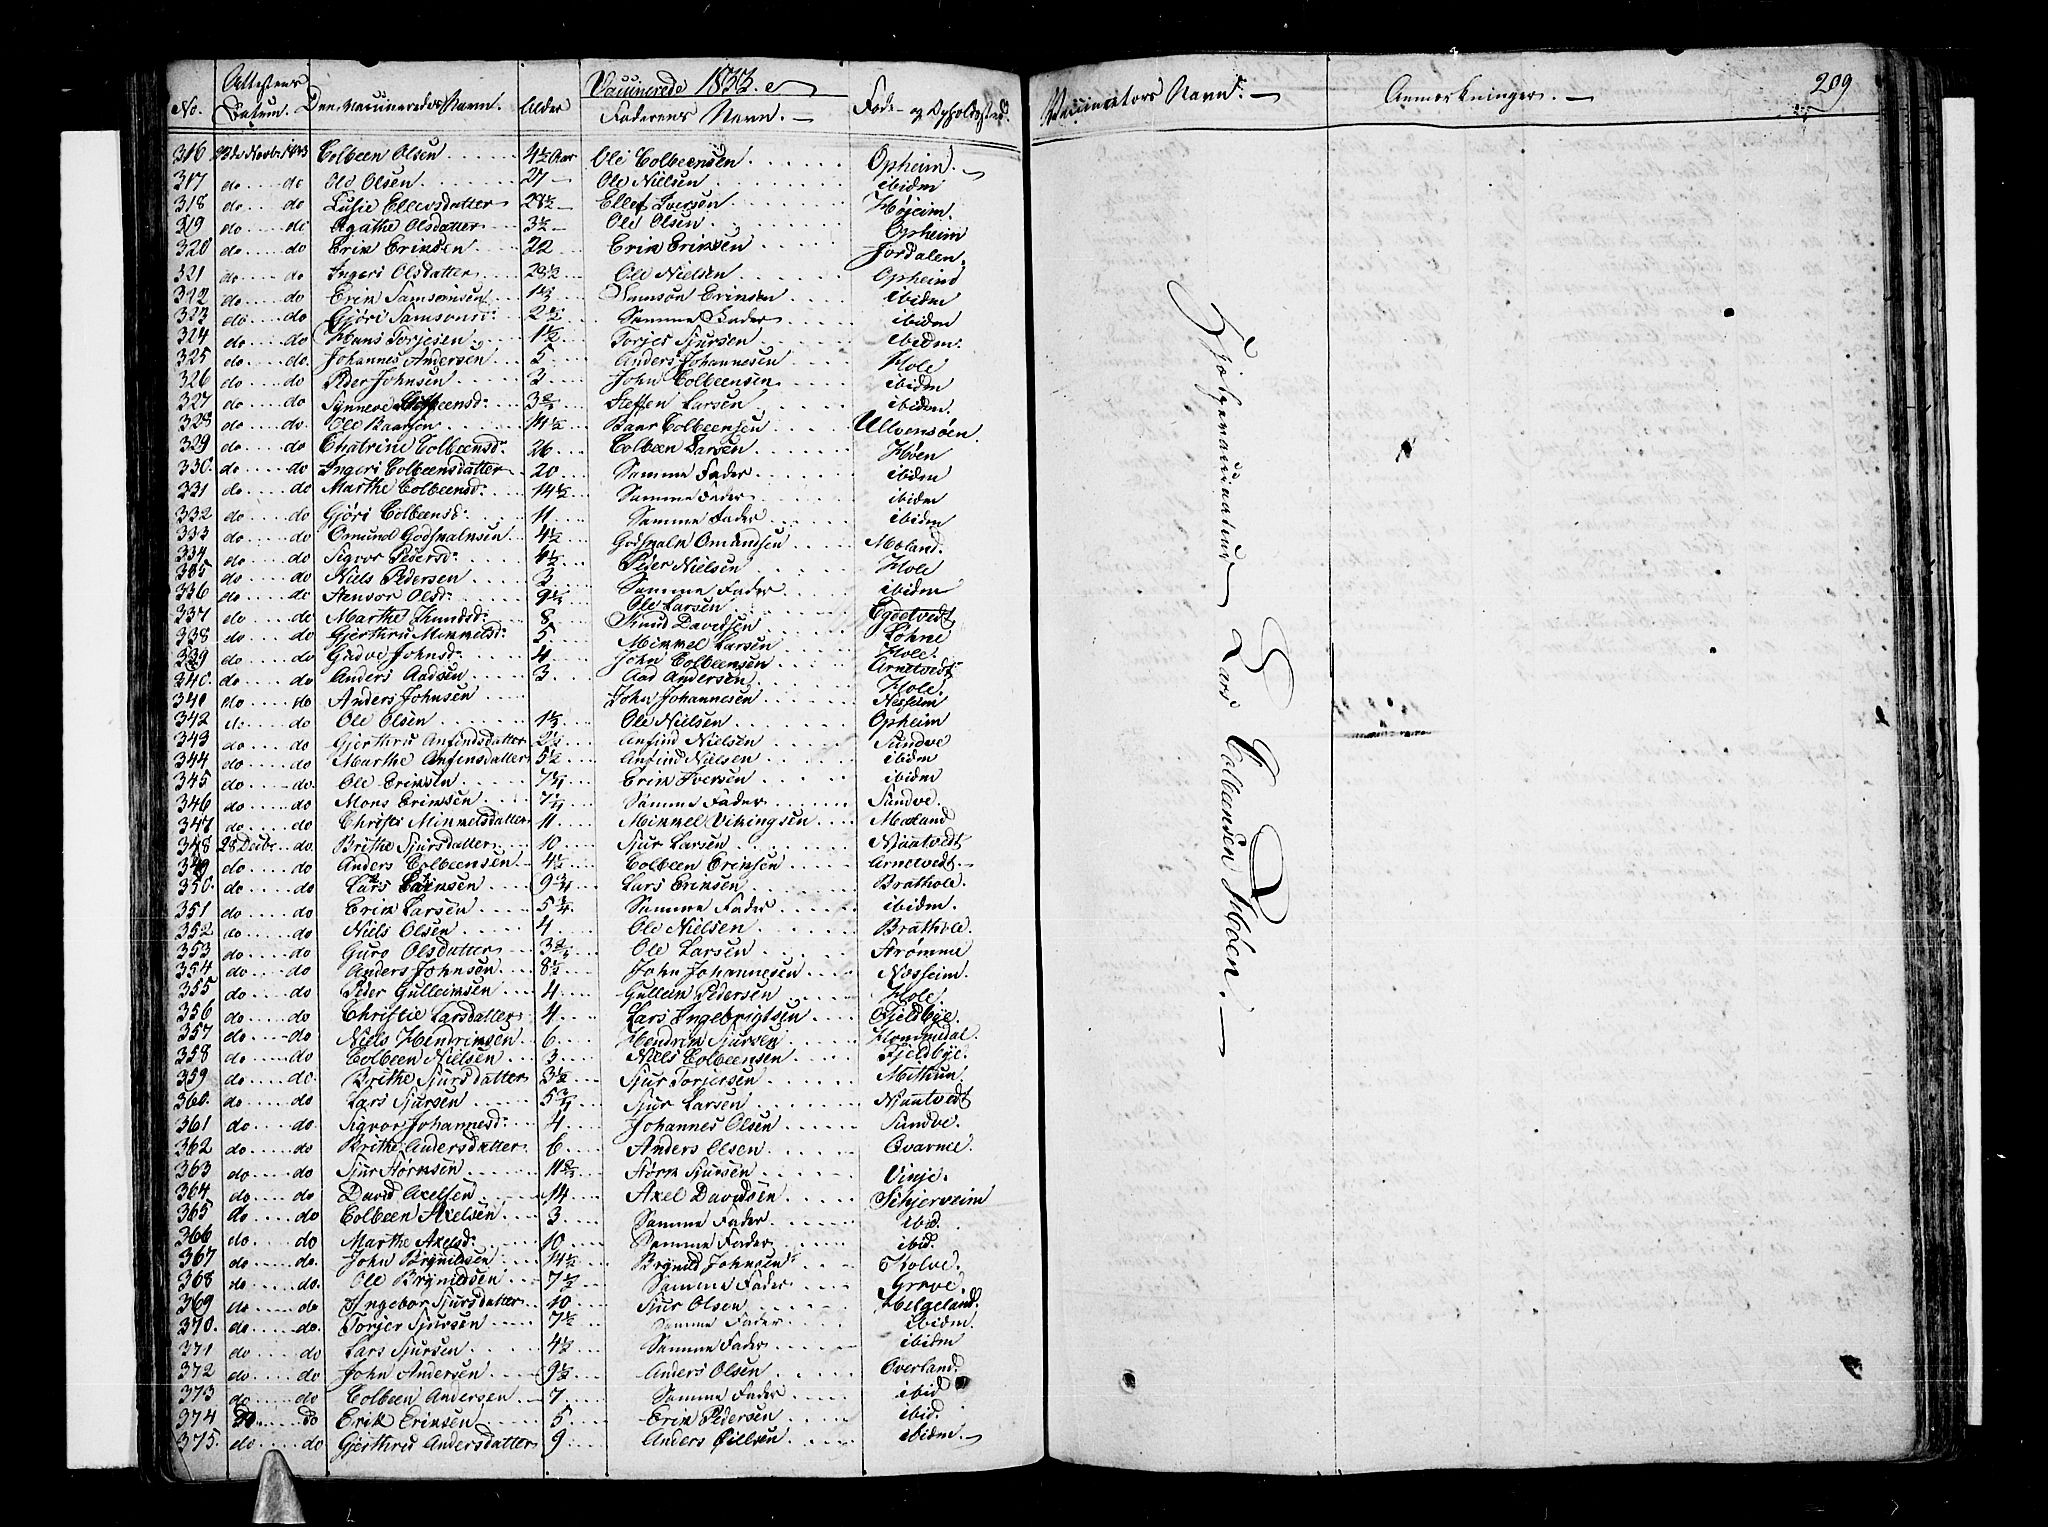 Attestens Vaccinerede 1833. 209
No. Datum. Den Vaccineredes Navn. Alder Faderens Navn. Føde- og Opholdssted. Vaccinators Navn. Anmærkninger.
316 Novbr. 1833 Colbeen Olsen 4½ Aar Ole Colbeensen Opheim.
317 do do Ole Olsen 27 Ole Nielsen ibidm
318 do do Lusie Ellevsdatter 28½ Ellef Iversen Højeim.
319 do do Agathe Olsdatter 3½ Ole Olsen Opheim
320 do do Erik Eriksen 22 Erik Eriksen Jordalen.
321 do do Ingeri Olsdatter 28½ Ole Nielsen Opheim
322 do do Erik Samsonsen Samson Eriksen ibidm
323 do do Gjøri Samsonsd: Samme Fader ibidm
324 do do Hans Torjesen 1½ Torjes Sjursen ibidm.
325 do do Johannes Andersen 5 Anders Johannesen Hole
326 do do Peder Johnsen 3 John Colbeensen ibidm
327 do do Synneve Steffensd: Steffen Larsen ibidm.
328 do do Ole Baarsen 14½ Baar Colbeensen Ullvensøen.
329 do do Chatrine Colbeensd: 26 Colbeen Larsen Høen
330. do do Ingeri Colbeensdatter 20 Samme Fader ibidm
331 do do Marthe Colbeensd: 14½ Samme Fader ibidm
332 do do Gjøri Colbeensd: 11 Samme Fader ibidm
333 do do Omund Godskalksen 4½ Godskalk Omundsen Moland.
334 do do Sigvor Pedersd: 4½ Peder Nielsen Hole
335 do do Niels Pedersen 3 Samme Fader ibidm
336 do do Stensor Olsd: Ole Larsen
337 do do Marthe Knudsd: 8 Knud Davidsen
338 do do Gjerthru Mikkelsd: 5 Mikkel Larsen Løhne
339 do do Gudve Johnsd: 4 John Colbeensen Hole.
340. do do Anders Aadsen 3 Aad Andersen Arnetvedt
341 do do Anders Johnsen John Johannesen
342 do do Ole Olsen Ole Nielsen Opheim
343 do do Gjerthru Anfindsdatter Anfind Nielsen Sundve
344 do do Marthe Anfinsdatter 5½ Anfind Nielsen ibidm
345 do do Ole Eriksen Erik Iversen ibidm
346 do do Mons Eriksen Samme Fader Sundve.
347 do do Christi Mikkelsdatter 11 Mikkel Vikingsen Moland
348 28 Decbr. do Brithe Sjursdatter 10 Sjur Larsen Njaatvedt
349 do do Anders Colbeensen Colbeen Eriksen Arnetvedt.
350. do do Lars Larsen 9¾ Lars Eriksen Brathole.
351 do do Erik Larsen 5¾ Samme Fader ibidm.
352 do do Niels Olsen 4 Ole Nielsen Brathole.
353 do do Guro Olsdatter Ole Larsen Strømme
354 do do Anders Johnsen John Johannesen Nosheim.
355 do do Peder Gulleiksen 4 Gulleik Pedersen Hole.
356 do do Christie Larsdatter 4 Lars Ingebrigtsen Fjeldbye.
357 do do Niels Hendriksen 6 Hendrik Sjursen Hommedal.
358 do do Colbeen Nielsen 3 Niels Colbeensen Fjeldbye.
359 do do Brithe Sjursdatter 3½ Sjur Torjersen Mithun.
360. do do Lars Sjursen Sjur Larsen Njaatvedt
361 do do Sigvor Johannesd: 4 Johannes Olsen Sundve.
362 do do Brithe Andersdatter 6 Anders Olsen Qvarnee.
363 do do Sjur Størksen Størk Sjursen Vinje.
364 do do David Axelsen 14 Axel Davidsen Schjerveim
365 do do Colbeen Axelsen 3 Samme Fader ibid.
366 do do Marthe Axelsd: 10 Samme Fader ibid.
367 do do John Brynildsen 14½ Brynild Johnsen Kolve.
368 do do Ole Brynildsen 7½ Samme Fader Grove.
369 do do Ingebor Sjursdatter 10 Sjur Olsen Helgeland.
370. do do Torjer Sjursen 7½ Samme Fader ibidm.
371 do do Lars Sjursen 4½ Samme Fader ibidm
372 do do John Andersen 9½ Anders Olsen Overland.
373 do do Colbeen Andersen 7 Samme Fader ibid
374 do do Erik Eriksen 5 Erik Pedersen ibid.
375. do do Gjerthru Andersdatter 9 Anders ibidm.
Hjelpevaccinateur Lars Colbensen Høen.